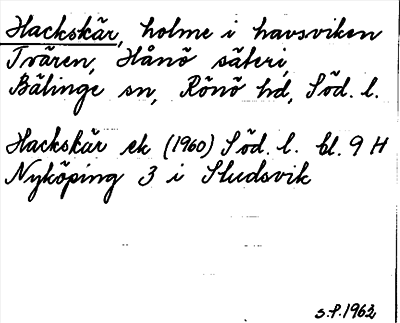 Hackskär, holme i havsviken
Tvären, Hånö säteri,
Bälinge sn, Rönö hd, Söd. l.
Hackskär ek (1960) Söd. l. bl. 9 H
Nyköping 3 i Studsvik
S.P. 1962